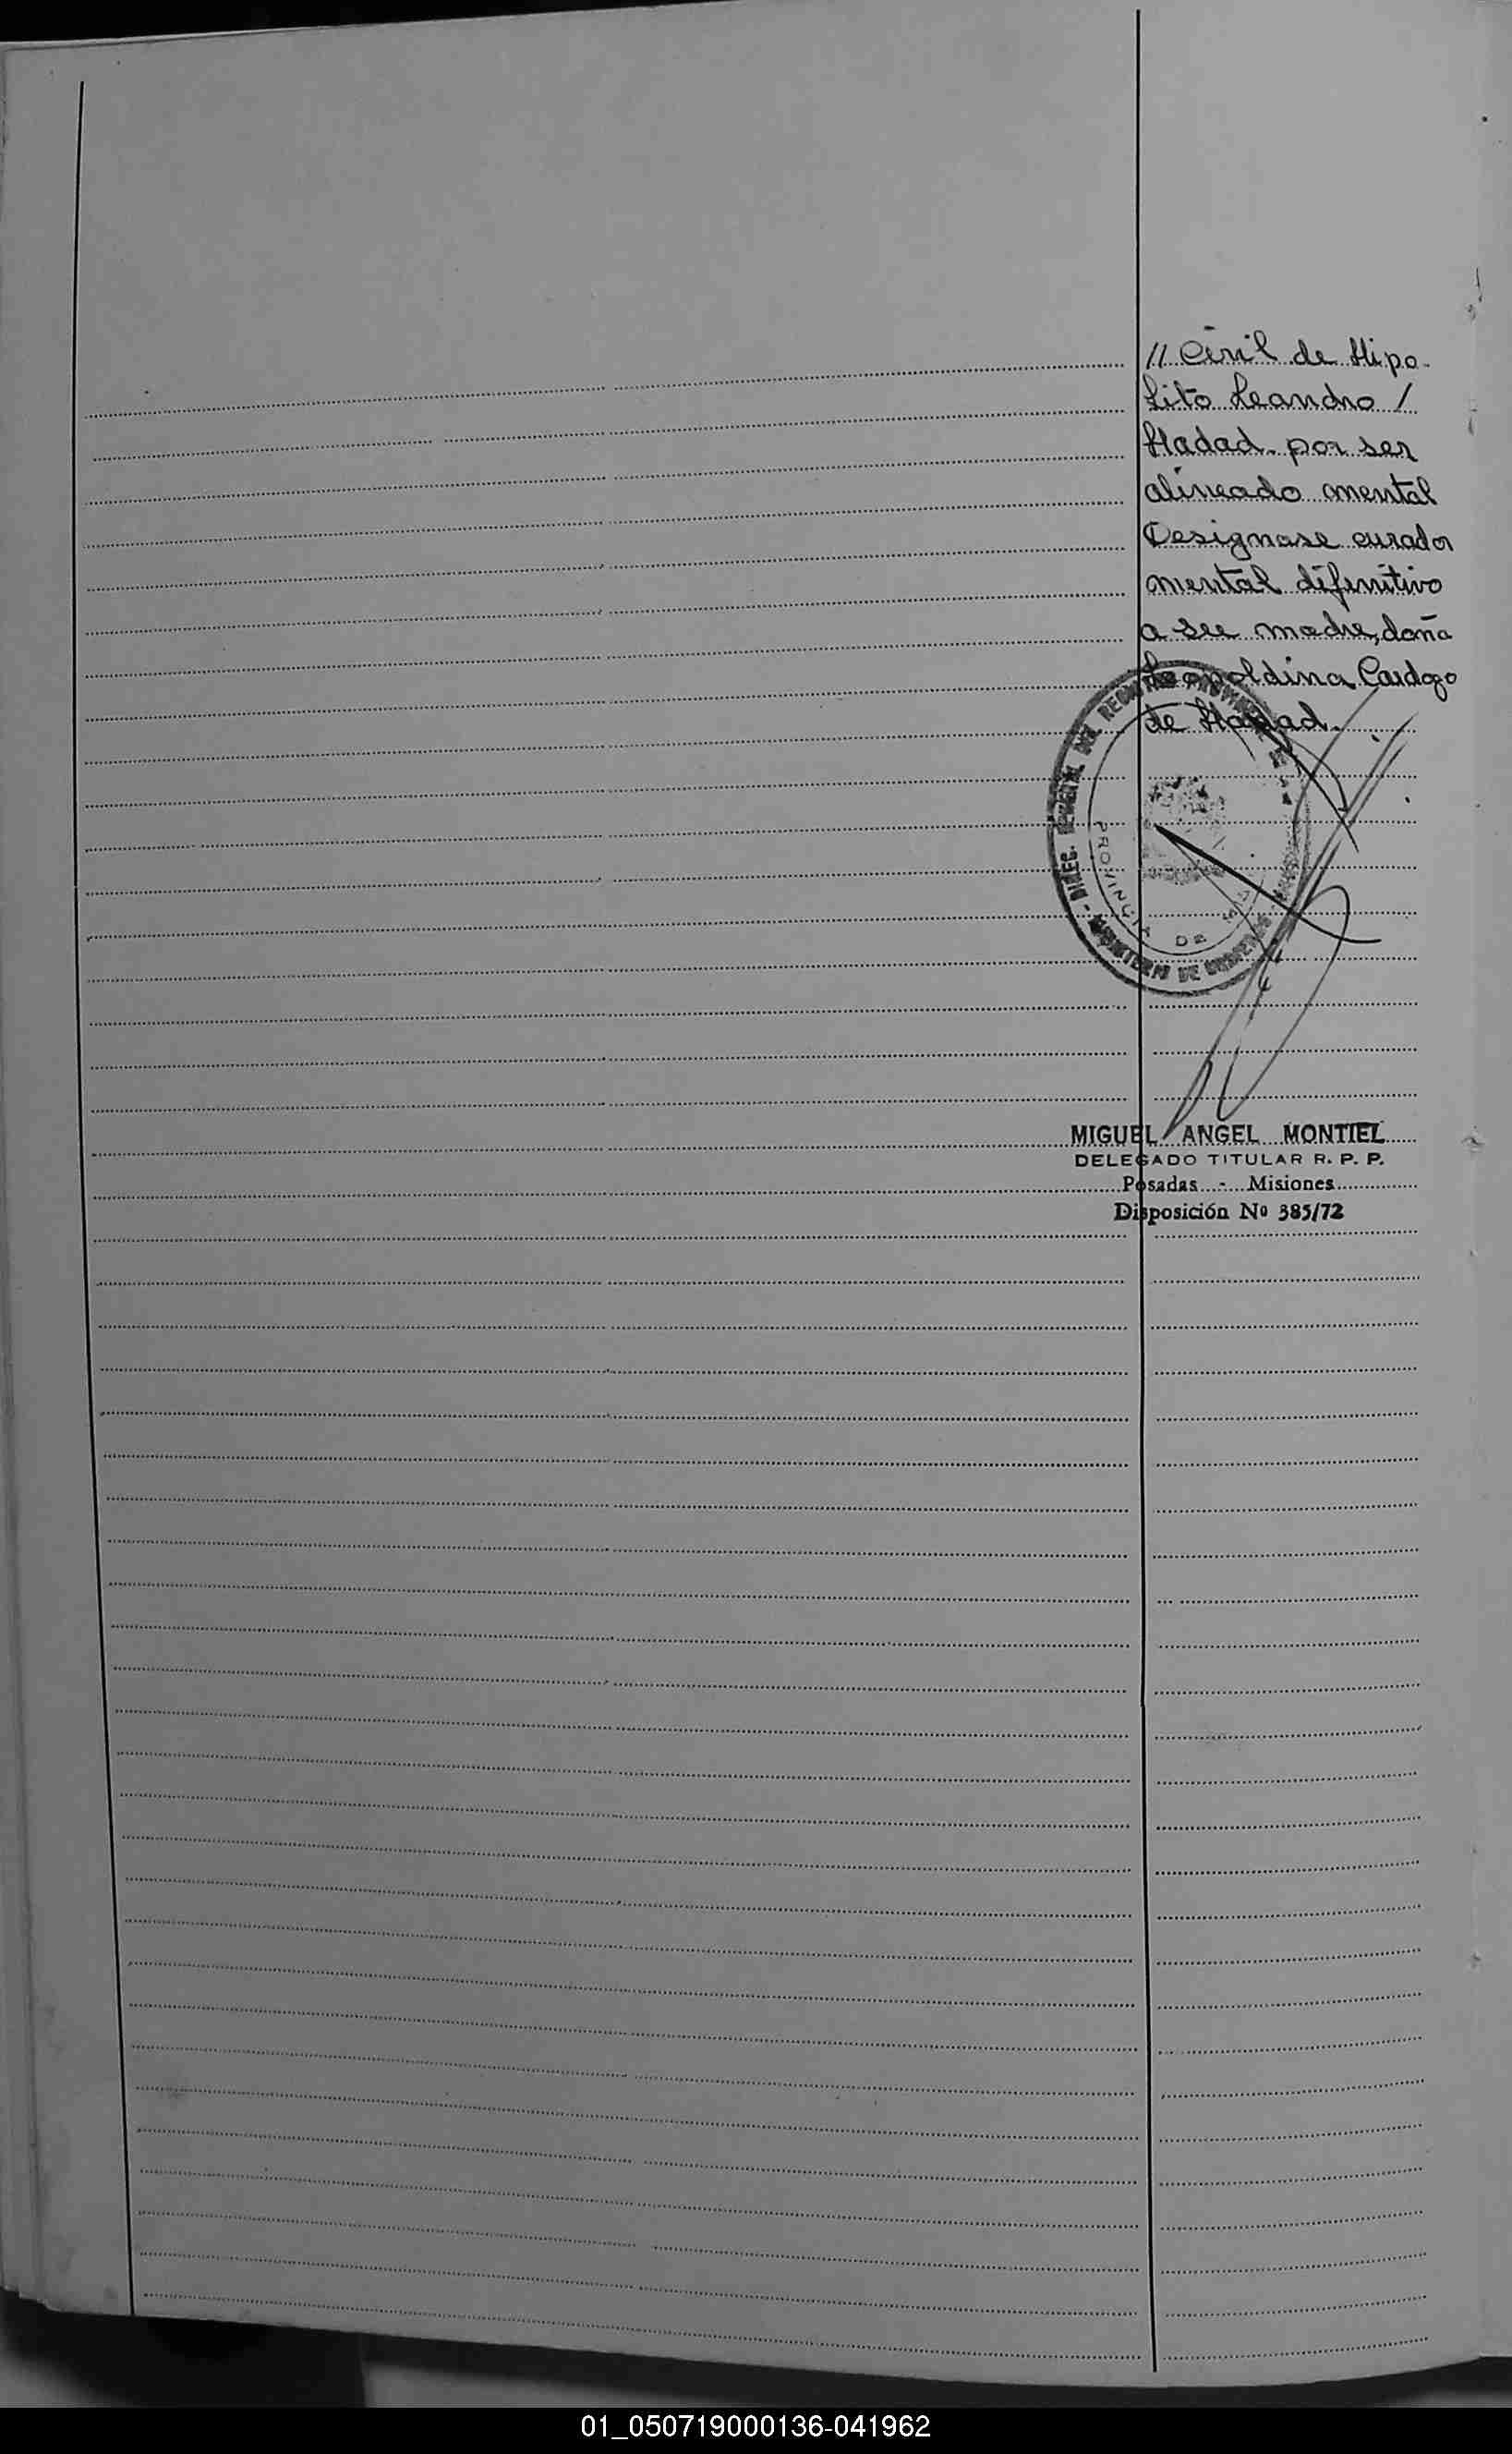 // Civil de Hipo-
lito Leandro /
Hadad. por ser
alineado mental
Designase curador
mental difinitivo
a su madre, doña
Leopoldina Cardozo
de Hadad.
DIREC. GENERAL DEL REGISTRO PROVINCIAL DE
MINISTERIO DE GOBIERNO
PROVINCIA DE
MIGUEL ANGEL MONTIEL
DELEGADO TITULAR R. P. P.
Posadas - Misiones
Disposición Nº 385/72
01_050719000136-041962